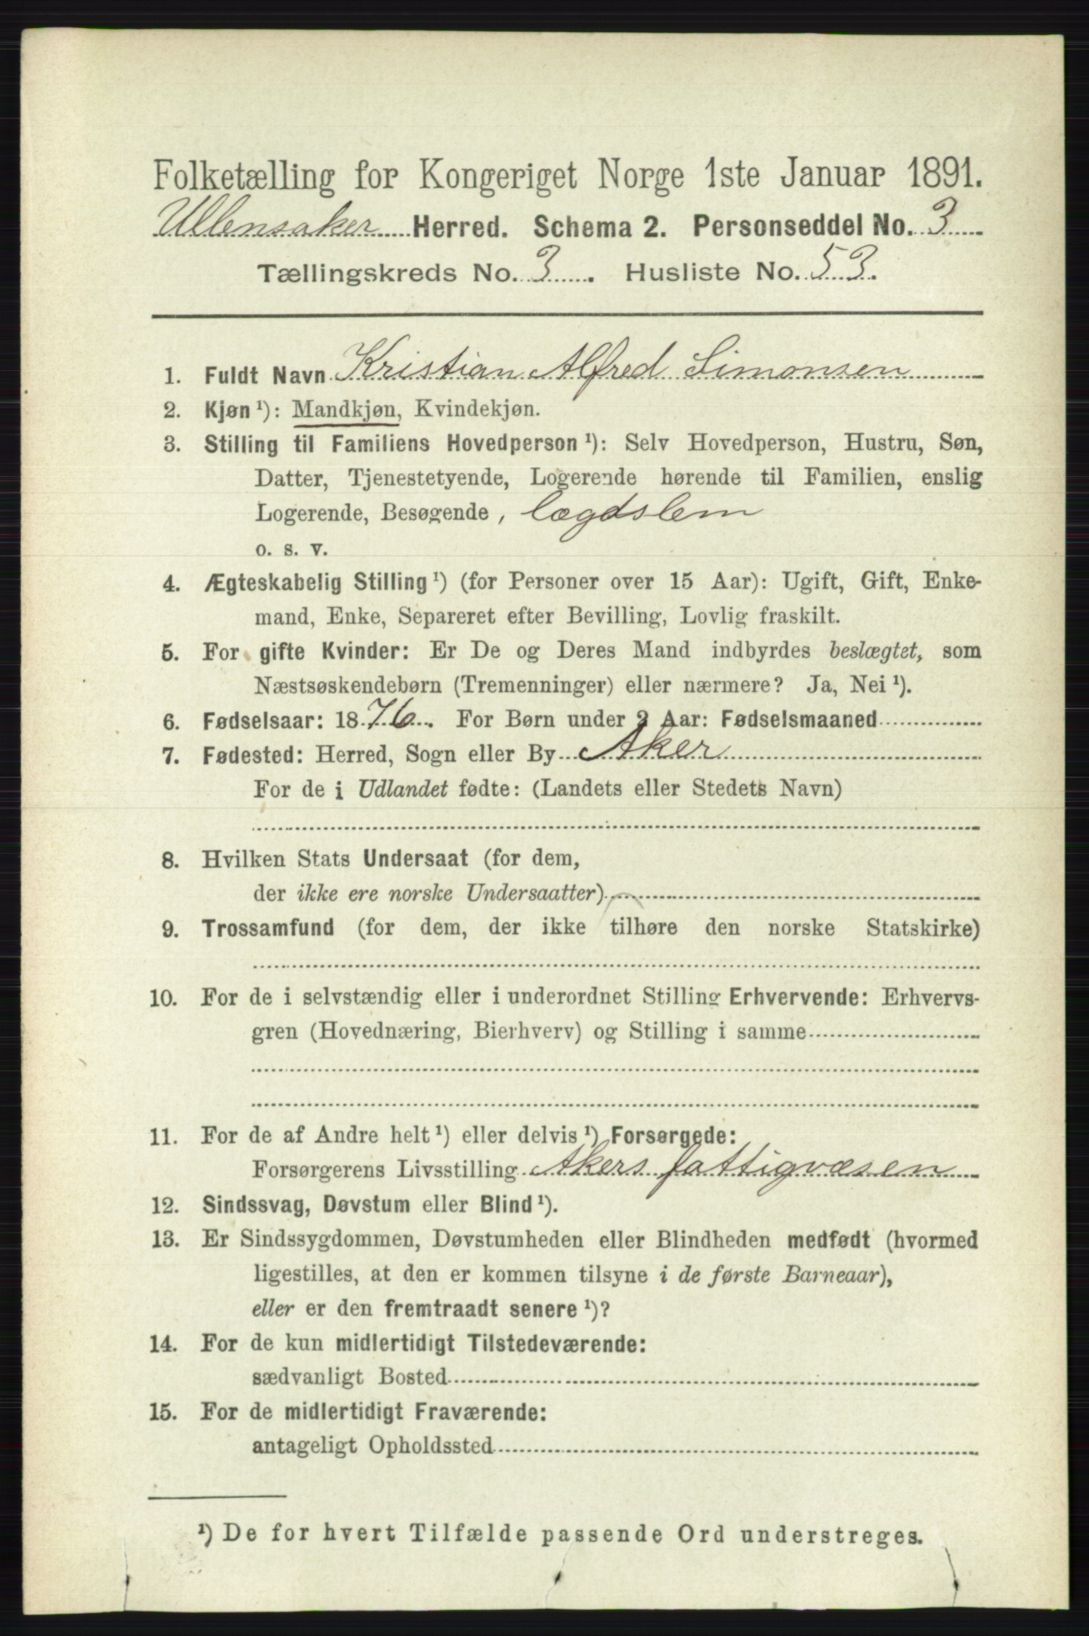 Folketælling for Kongeriget Norge 1ste Januar 1891.
Ullensaker Herred. Schema 2. Personseddel No. 3
Tællingskreds No. 3. Husliste No. 53.
1. Fuldt Navn Kristian Alfred Simonsen
2. Kjøn ¹): Mandkjøn, Kvindekjøn.
3. Stilling til Familiens Hovedperson ¹): Selv Hovedperson, Hustru, Søn,
Datter, Tjenestetyende, Logerende hørende til Familien, enslig
Logerende, Besøgende, lægdslem
o. s. v.
4. Ægteskabelig Stilling ¹) (for Personer over 15 Aar): Ugift, Gift, Enke-
mand, Enke, Separeret efter Bevilling, Lovlig fraskilt.
5. For gifte Kvinder: Er De og Deres Mand indbyrdes beslægtet, som
Næstsøskendebørn (Tremenninger) eller nærmere? Ja, Nei ¹).
6. Fødselsaar: 1876. For Børn under 2 Aar: Fødselsmaaned
7. Fødested: Herred, Sogn eller By Aker
For de i Udlandet fødte: (Landets eller Stedets Navn)
8. Hvilken Stats Undersaat (for dem,
der ikke ere norske Undersaatter)
9. Trossamfund (for dem, der ikke tilhøre den norske Statskirke)
10. For de i selvstændig eller i underordnet Stilling Erhvervende: Erhvervs-
gren (Hovednæring, Bierhverv) og Stilling i samme
11. For de af Andre helt ¹) eller delvis ¹) Forsørgede:
Forsørgerens Livsstilling Akers fattigvæsen
12. Sindssvag, Døvstum eller Blind ¹).
13. Er Sindssygdommen, Døvstumheden eller Blindheden medfødt (hvormed
ligestilles, at den er kommen tilsyne i de første Barneaar),
eller er den fremtraadt senere ¹)?
14. For de kun midlertidigt Tilstedeværende:
sædvanligt Bosted
15. For de midlertidigt Fraværende:
antageligt Opholdssted
¹) De for hvert Tilfælde passende Ord understreges.